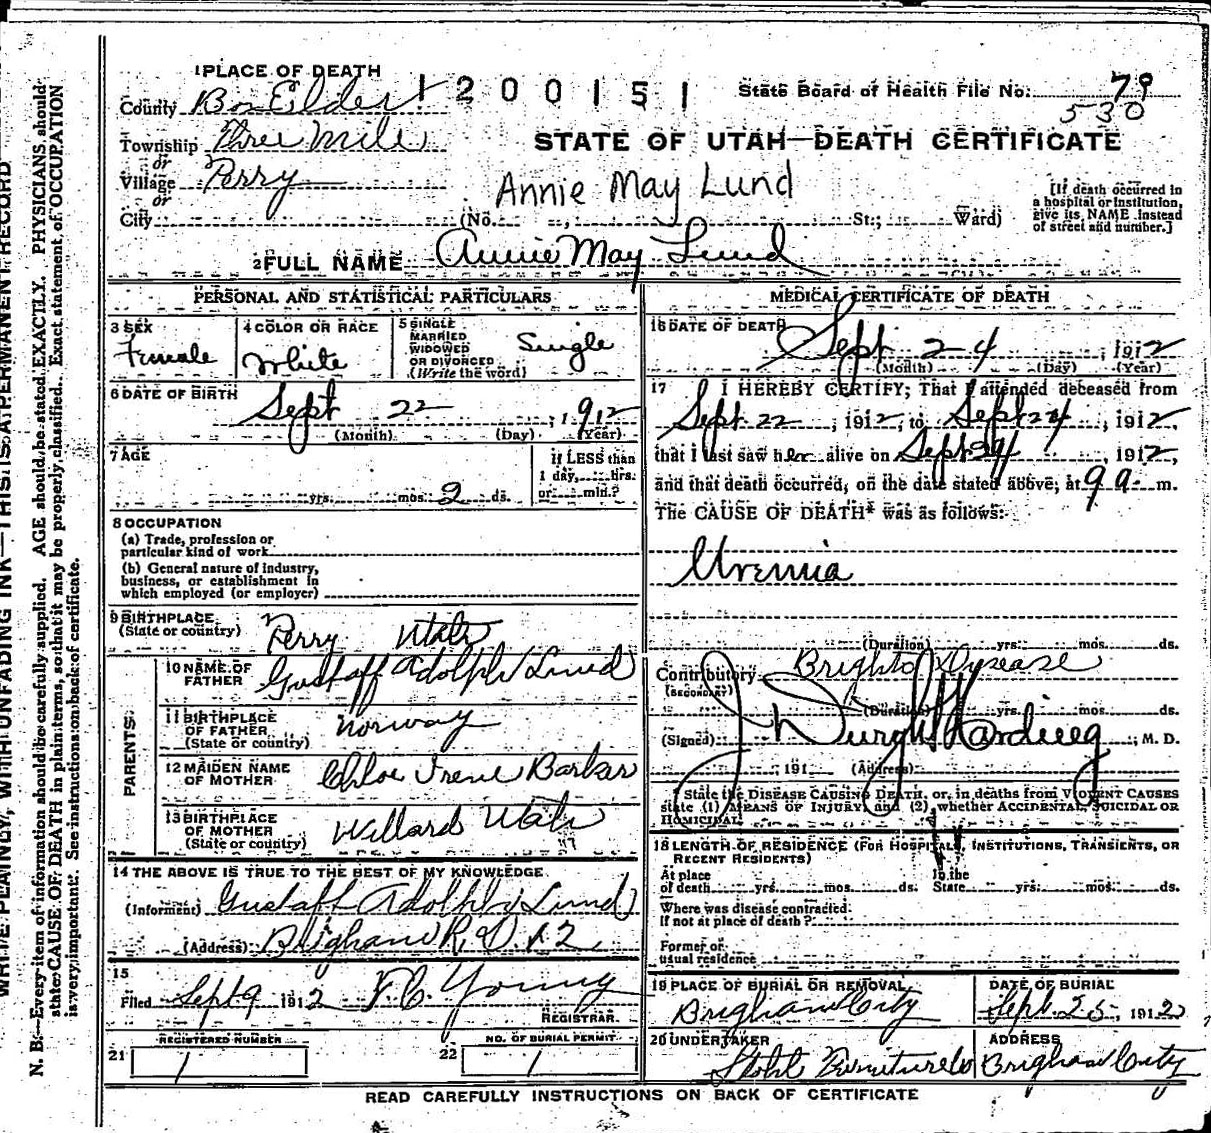 WRITE PLAINLY, WITH UNFADING INK—THIS IS A PERMANENT RECORD
N. B.—Every item of information should be carefully supplied. AGE should be stated EXACTLY. PHYSICIANS should
state CAUSE OF DEATH in plain terms, so that it may be properly classified. Exact statement of OCCUPATION
is very important. See instructions on back of certificate.
1 PLACE OF DEATH
County Box Elder
1200151
State Board of Health File No. 79
530
Township Three Mile
or
Village Perry
or
City (No. , St.; Ward)
STATE OF UTAH—DEATH CERTIFICATE
Annie May Lund
[If death occurred in
a hospital or institution,
give its NAME instead
of street and number.]
2 FULL NAME Annie May Lund
PERSONAL AND STATISTICAL PARTICULARS
3 SEX
Female
4 COLOR OR RACE
White
5 SINGLE
MARRIED
WIDOWED
OR DIVORCED
(Write the word)
Single
6 DATE OF BIRTH
Sept 22, 1912
(Month) (Day) (Year)
7 AGE
yrs. mos. 2 ds.
If LESS than
1 day, hrs.
or min.?
8 OCCUPATION
(a) Trade, profession or
particular kind of work
(b) General nature of industry,
business, or establishment in
which employed (or employer)
9 BIRTHPLACE
(State or country)
Perry Utah
PARENTS
10 NAME OF
FATHER
Gustaff Adolph Lund
11 BIRTHPLACE
OF FATHER
(State or country)
Norway
12 MAIDEN NAME
OF MOTHER
Chloe Irene Barker
13 BIRTHPLACE
OF MOTHER
(State or country)
Willard Utah
14 THE ABOVE IS TRUE TO THE BEST OF MY KNOWLEDGE
(Informant) Gustaff Adolph Lund
(Address) Brigham R. D. 2
15
Filed Sept 9 1912 Young
REGISTRAR.
REGISTERED NUMBER
21 1
NO. OF BURIAL PERMIT
22 1
MEDICAL CERTIFICATE OF DEATH
16 DATE OF DEATH
Sept 24, 1912
(Month) (Day) (Year)
17 I HEREBY CERTIFY; That I attended deceased from
Sept 22, 1912, to Sept 24, 1912,
that I last saw her alive on Sept 24, 1912,
and that death occurred, on the date stated above, at 9 a. m.
The CAUSE OF DEATH* was as follows:
Uremia
(Duration) yrs. mos. ds.
Contributory Brights Dysease
(SECONDARY)
(Duration) yrs. mos. ds.
(Signed) Harding, M. D.
, 191 (Address)
* State the DISEASE CAUSING DEATH, or, in deaths from VIOLENT CAUSES
state (1) MEANS OF INJURY; and (2) whether ACCIDENTAL, SUICIDAL OR
HOMICIDAL.
18 LENGTH OF RESIDENCE (FOR HOSPITALS, INSTITUTIONS, TRANSIENTS, OR
RECENT RESIDENTS)
At place
of death yrs. mos. ds.
In the
State yrs. mos. ds.
Where was disease contracted
If not at place of death?
Former or
usual residence
19 PLACE OF BURIAL OR REMOVAL
Brigham City
DATE OF BURIAL
Sept. 25, 1912
20 UNDERTAKER
Stohl Furniture Co
ADDRESS
Brigham City
READ CAREFULLY INSTRUCTIONS ON BACK OF CERTIFICATE